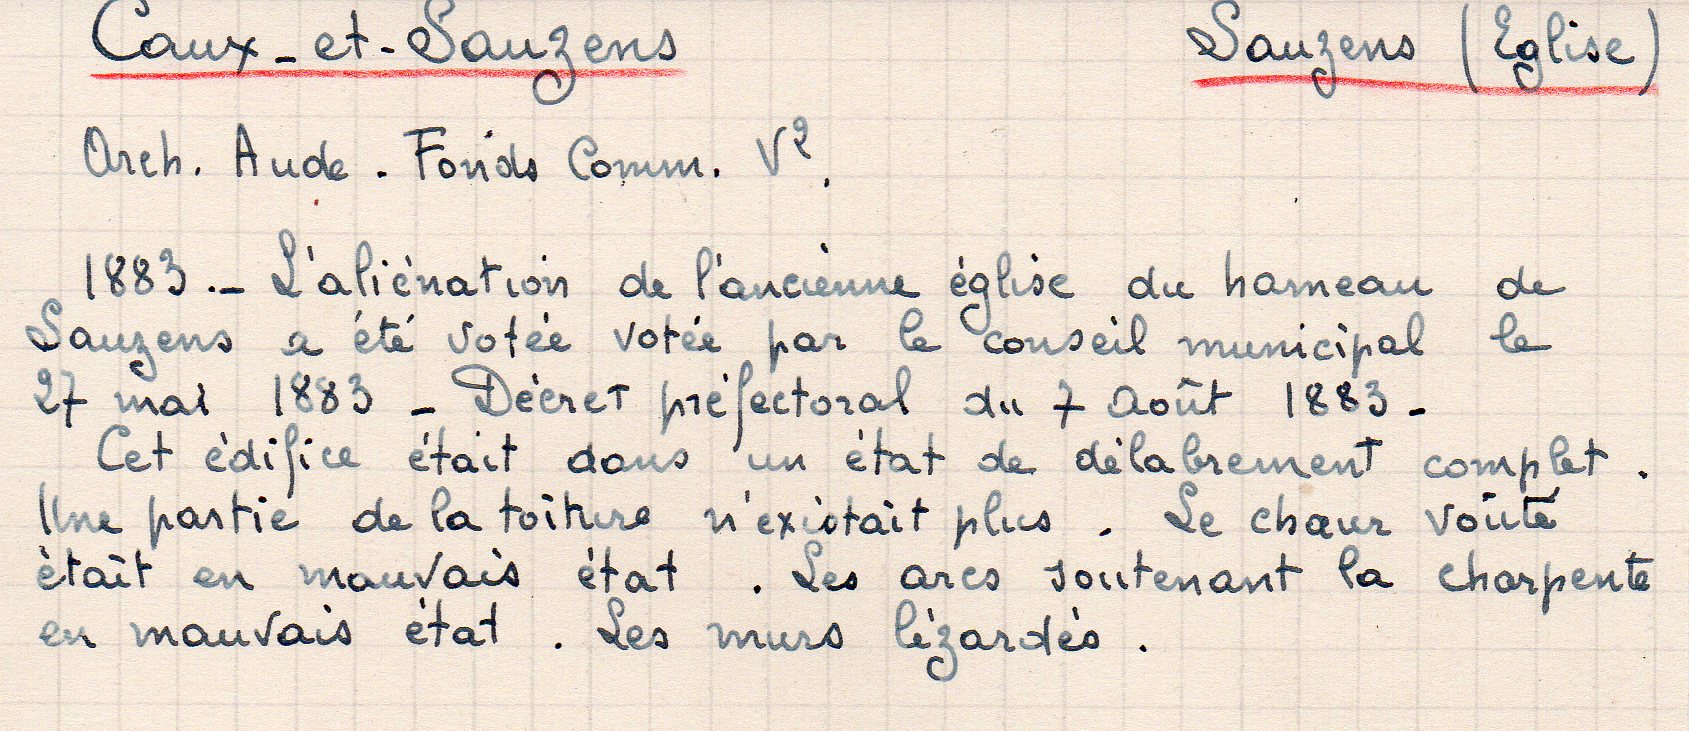 Caux-et-Sauzens Sauzens (Eglise)
Arch. Aude. Fonds Comm. V².
1883.- L'aliénation de l'ancienne église du hameau de
Sauzens a été votée votée par le conseil municipal le
27 mai 1883 - Décret préfectoral du 7 Août 1883 -
Cet édifice était dans un état de délabrement complet.
Une partie de la toiture n'existait plus. Le chœur voûté
était en mauvais état. Les arcs soutenant la charpente
en mauvais état. Les murs lézardés.